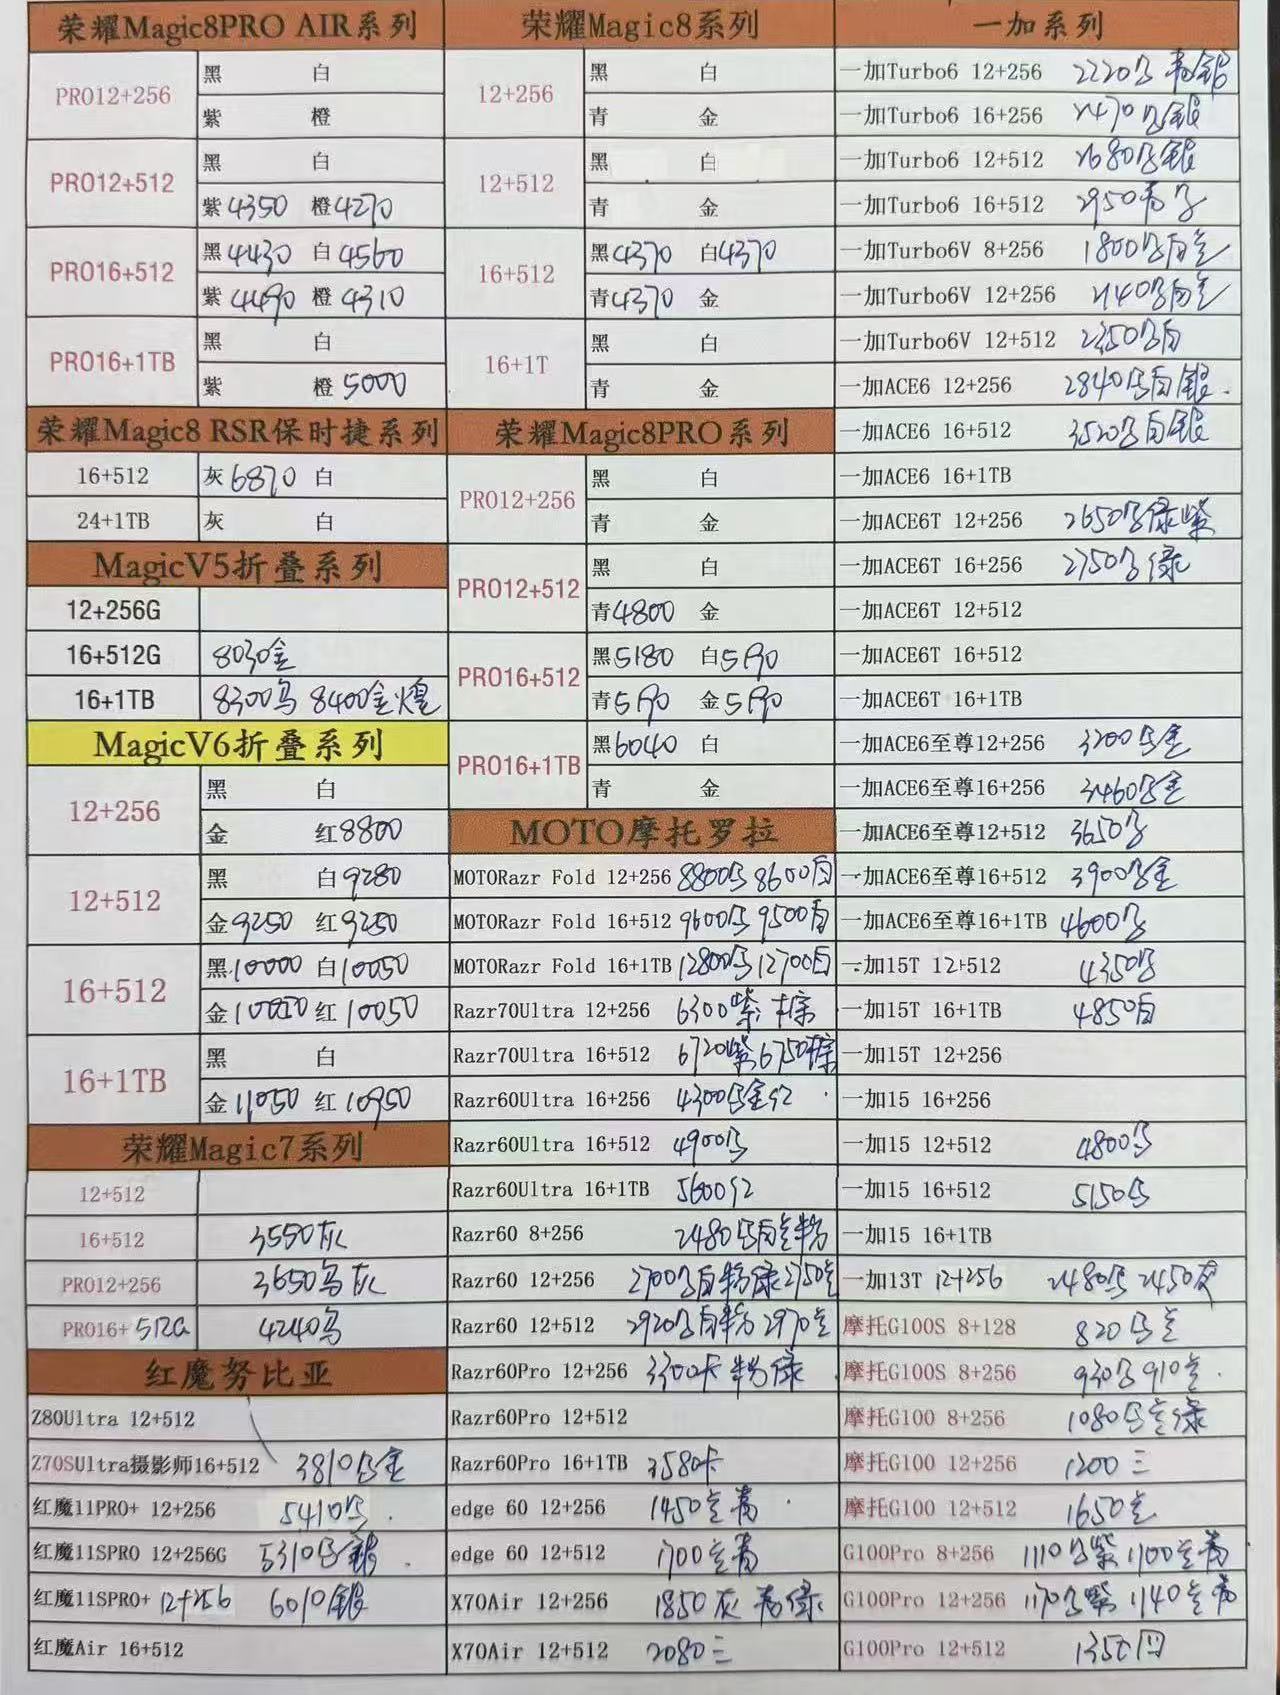 荣耀Magic8PRO AIR系列
PRO12+256
黑 白
紫 橙
PRO12+512
黑 白
紫4350 橙4270
PRO16+512
黑4430 白4560
紫4490 橙4310
PRO16+1TB
黑 白
紫 橙5000
荣耀Magic8 RSR保时捷系列
16+512 灰6870 白
24+1TB 灰 白
MagicV5折叠系列
12+256G
16+512G 8030金
16+1TB 8300乌 8400金
MagicV6折叠系列
12+256
黑 白
金 红8800
12+512
黑 白9280
金9250 红9250
16+512
黑10000 白10050
金10050 红10050
16+1TB
黑 白
金11050 红10950
荣耀Magic7系列
12+512
16+512 3550灰
PRO12+256 3650乌灰
PRO16+512G 4240乌
红魔努比亚
Z80Ultra 12+512
Z70SUltra摄影师16+512 3810乌金
红魔11PRO+ 12+256 5410乌
红魔11SPRO 12+256G 5310乌银
红魔11SPRO+ 12+256 6010银
红魔Air 16+512
荣耀Magic8系列
12+256
黑 白
青 金
12+512
黑 白
青 金
16+512
黑4370 白4370
青4370 金
16+1T
黑 白
青 金
荣耀Magic8PRO系列
PRO12+256
黑 白
青 金
PRO12+512
黑 白
青4800 金
PRO16+512
黑5180 白5190
青5190 金5190
PRO16+1TB
黑6040 白
青 金
MOTO摩托罗拉
MOTORazr Fold 12+256 8800乌 8600白
MOTORazr Fold 16+512 9600乌 9500白
MOTORazr Fold 16+1TB 12800乌 12700白
Razr70Ultra 12+256 6300紫 棕
Razr70Ultra 16+512 6720紫 6750棕
Razr60Ultra 16+256 4300乌金红
Razr60Ultra 16+512 4900乌
Razr60Ultra 16+1TB 5600红
Razr60 8+256 2480乌白金粉
Razr60 12+256 2700乌白粉绿 2750金
Razr60 12+512 2920乌白粉 2970金
Razr60Pro 12+256 3300卡粉绿
Razr60Pro 12+512
Razr60Pro 16+1TB 3580卡
edge 60 12+256 1450金青
edge 60 12+512 1700金青
X70Air 12+256 1850灰青绿
X70Air 12+512 2080三
一加系列
一加Turbo6 12+256 2220乌青银
一加Turbo6 16+256 2470乌银
一加Turbo6 12+512 2680乌银
一加Turbo6 16+512 2950青乌
一加Turbo6V 8+256 1800乌白金
一加Turbo6V 12+256 2140乌白金
一加Turbo6V 12+512 2350乌白
一加ACE6 12+256 2840乌白银
一加ACE6 16+512 3520乌白银
一加ACE6 16+1TB
一加ACE6T 12+256 2650乌绿紫
一加ACE6T 16+256 2750乌绿
一加ACE6T 12+512
一加ACE6T 16+512
一加ACE6T 16+1TB
一加ACE6至尊12+256 3200乌金
一加ACE6至尊16+256 3460乌金
一加ACE6至尊12+512 3650乌
一加ACE6至尊16+512 3900乌金
一加ACE6至尊16+1TB 4600乌
一加15T 12+512 4350乌
一加15T 16+1TB 4850白
一加15T 12+256
一加15 16+256
一加15 12+512 4800乌
一加15 16+512 5150乌
一加15 16+1TB
一加13T 12+256 2480乌 2450灰
摩托G100S 8+128 820乌金
摩托G100S 8+256 930乌 910金
摩托G100 8+256 1080乌金绿
摩托G100 12+256 1200三
摩托G100 12+512 1650金
G100Pro 8+256 1110乌紫 1100金青
G100Pro 12+256 1170乌紫 1140金青
G100Pro 12+512 1350四